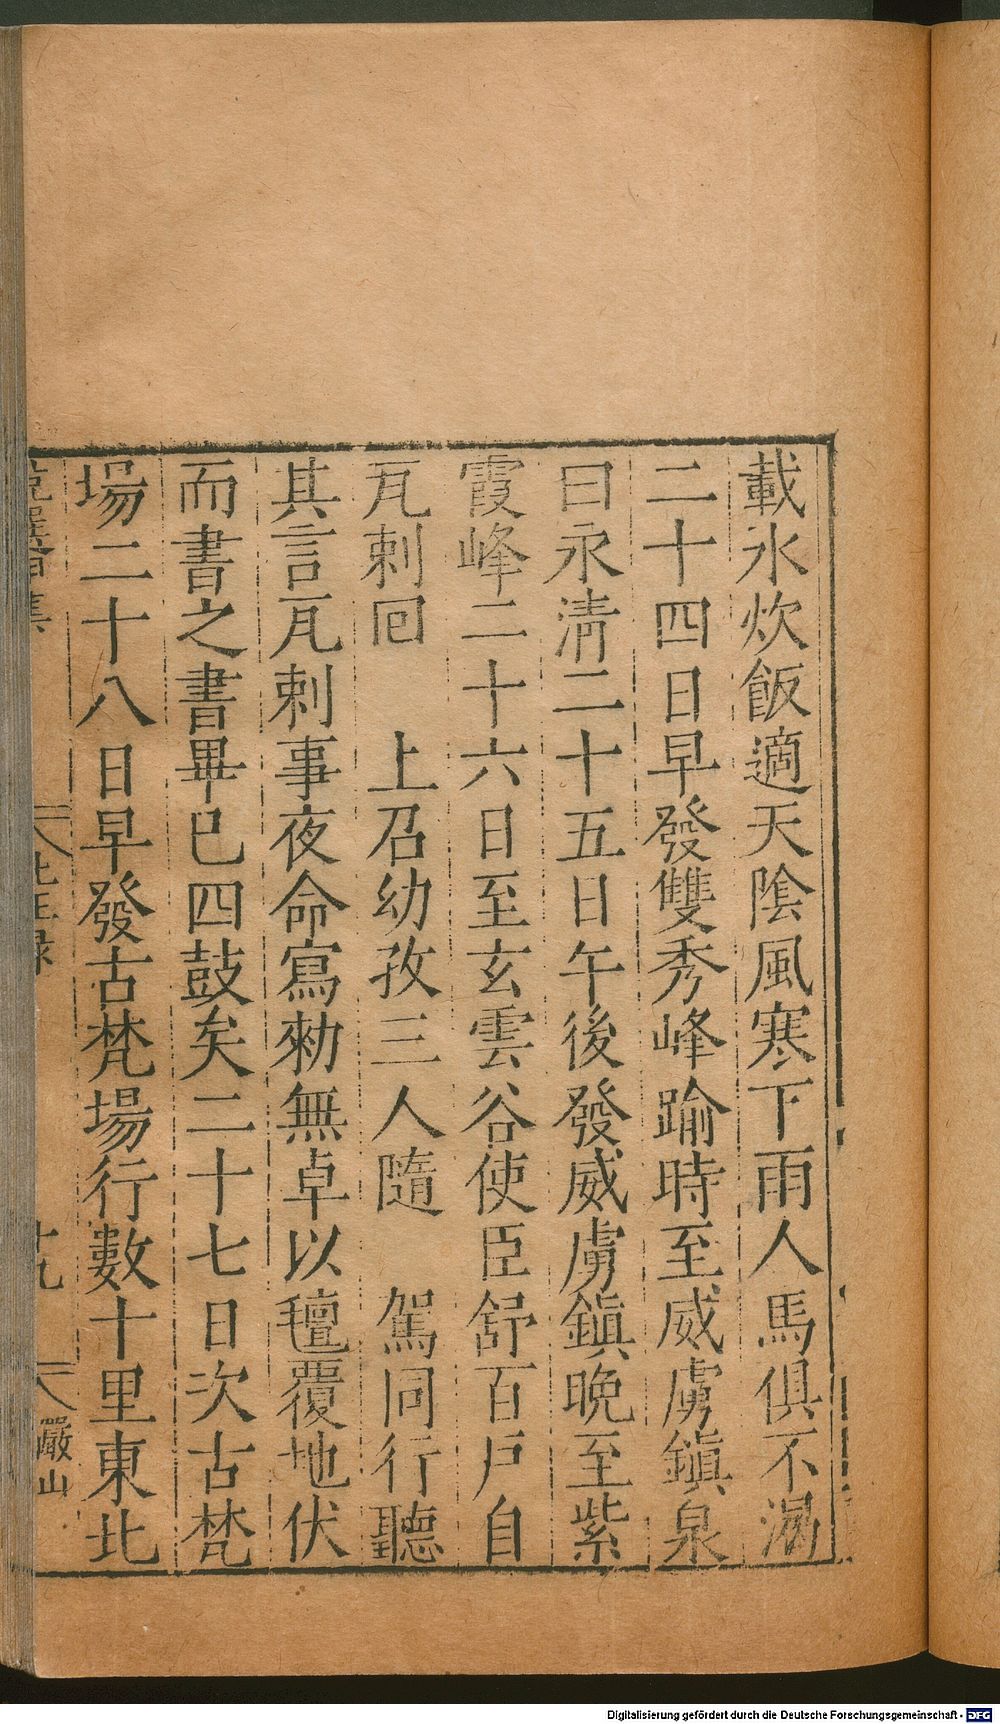 載水炊飯適天陰風寒下雨人馬俱不渴
二十四日早發雙秀峰踰時至威虜鎮泉
曰永清二十五日午後發威虜鎮晚至紫
霞峰二十六日至玄雲谷使臣舒百戶自
瓦剌回　上召幼孜三人隨　駕同行聽
其言瓦剌事夜命寫勑無卓以氊覆地伏
而書之書畢已四鼓矣二十七日次古梵
場二十八日早發古梵場行數十里東北
北征錄　十九　嚴山
Digitalisierung gefördert durch die Deutsche Forschungsgemeinschaft - DFG